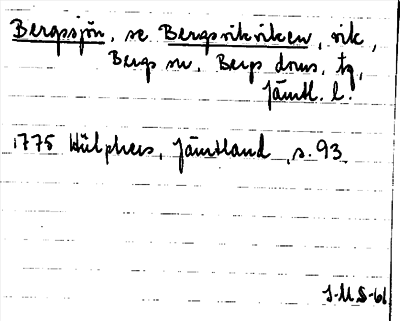 Bergssjön, se Bergsvikviken, vik,
Bergs sn, Bergs doms. tg,
Jämtl. l.
1775 Hülphers, Jämtland, s. 93
J.M.S-61